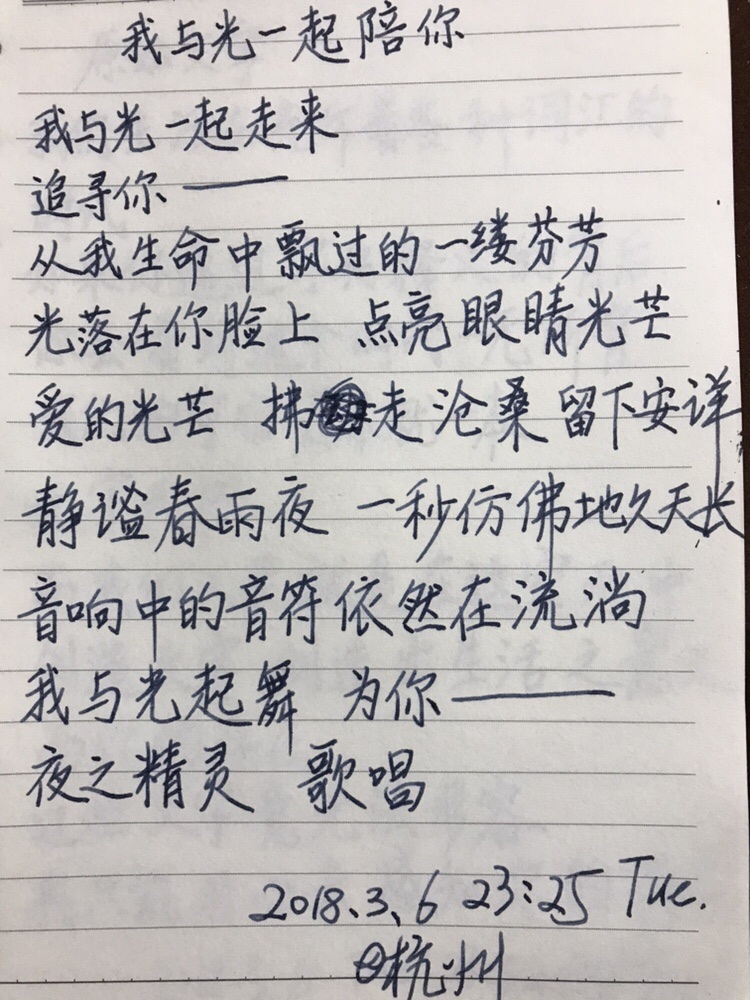 我与光一起陪你
我与光一起走来
追寻你——
从我生命中飘过的一缕芬芳
光落在你脸上 点亮眼睛光芒
爱的光芒 拂走沧桑 留下安详
静谧春雨夜 一秒仿佛地久天长
音响中的音符依然在流淌
我与光起舞 为你——
夜之精灵 歌唱
2018.3.6 23:25 Tue.
@杭州